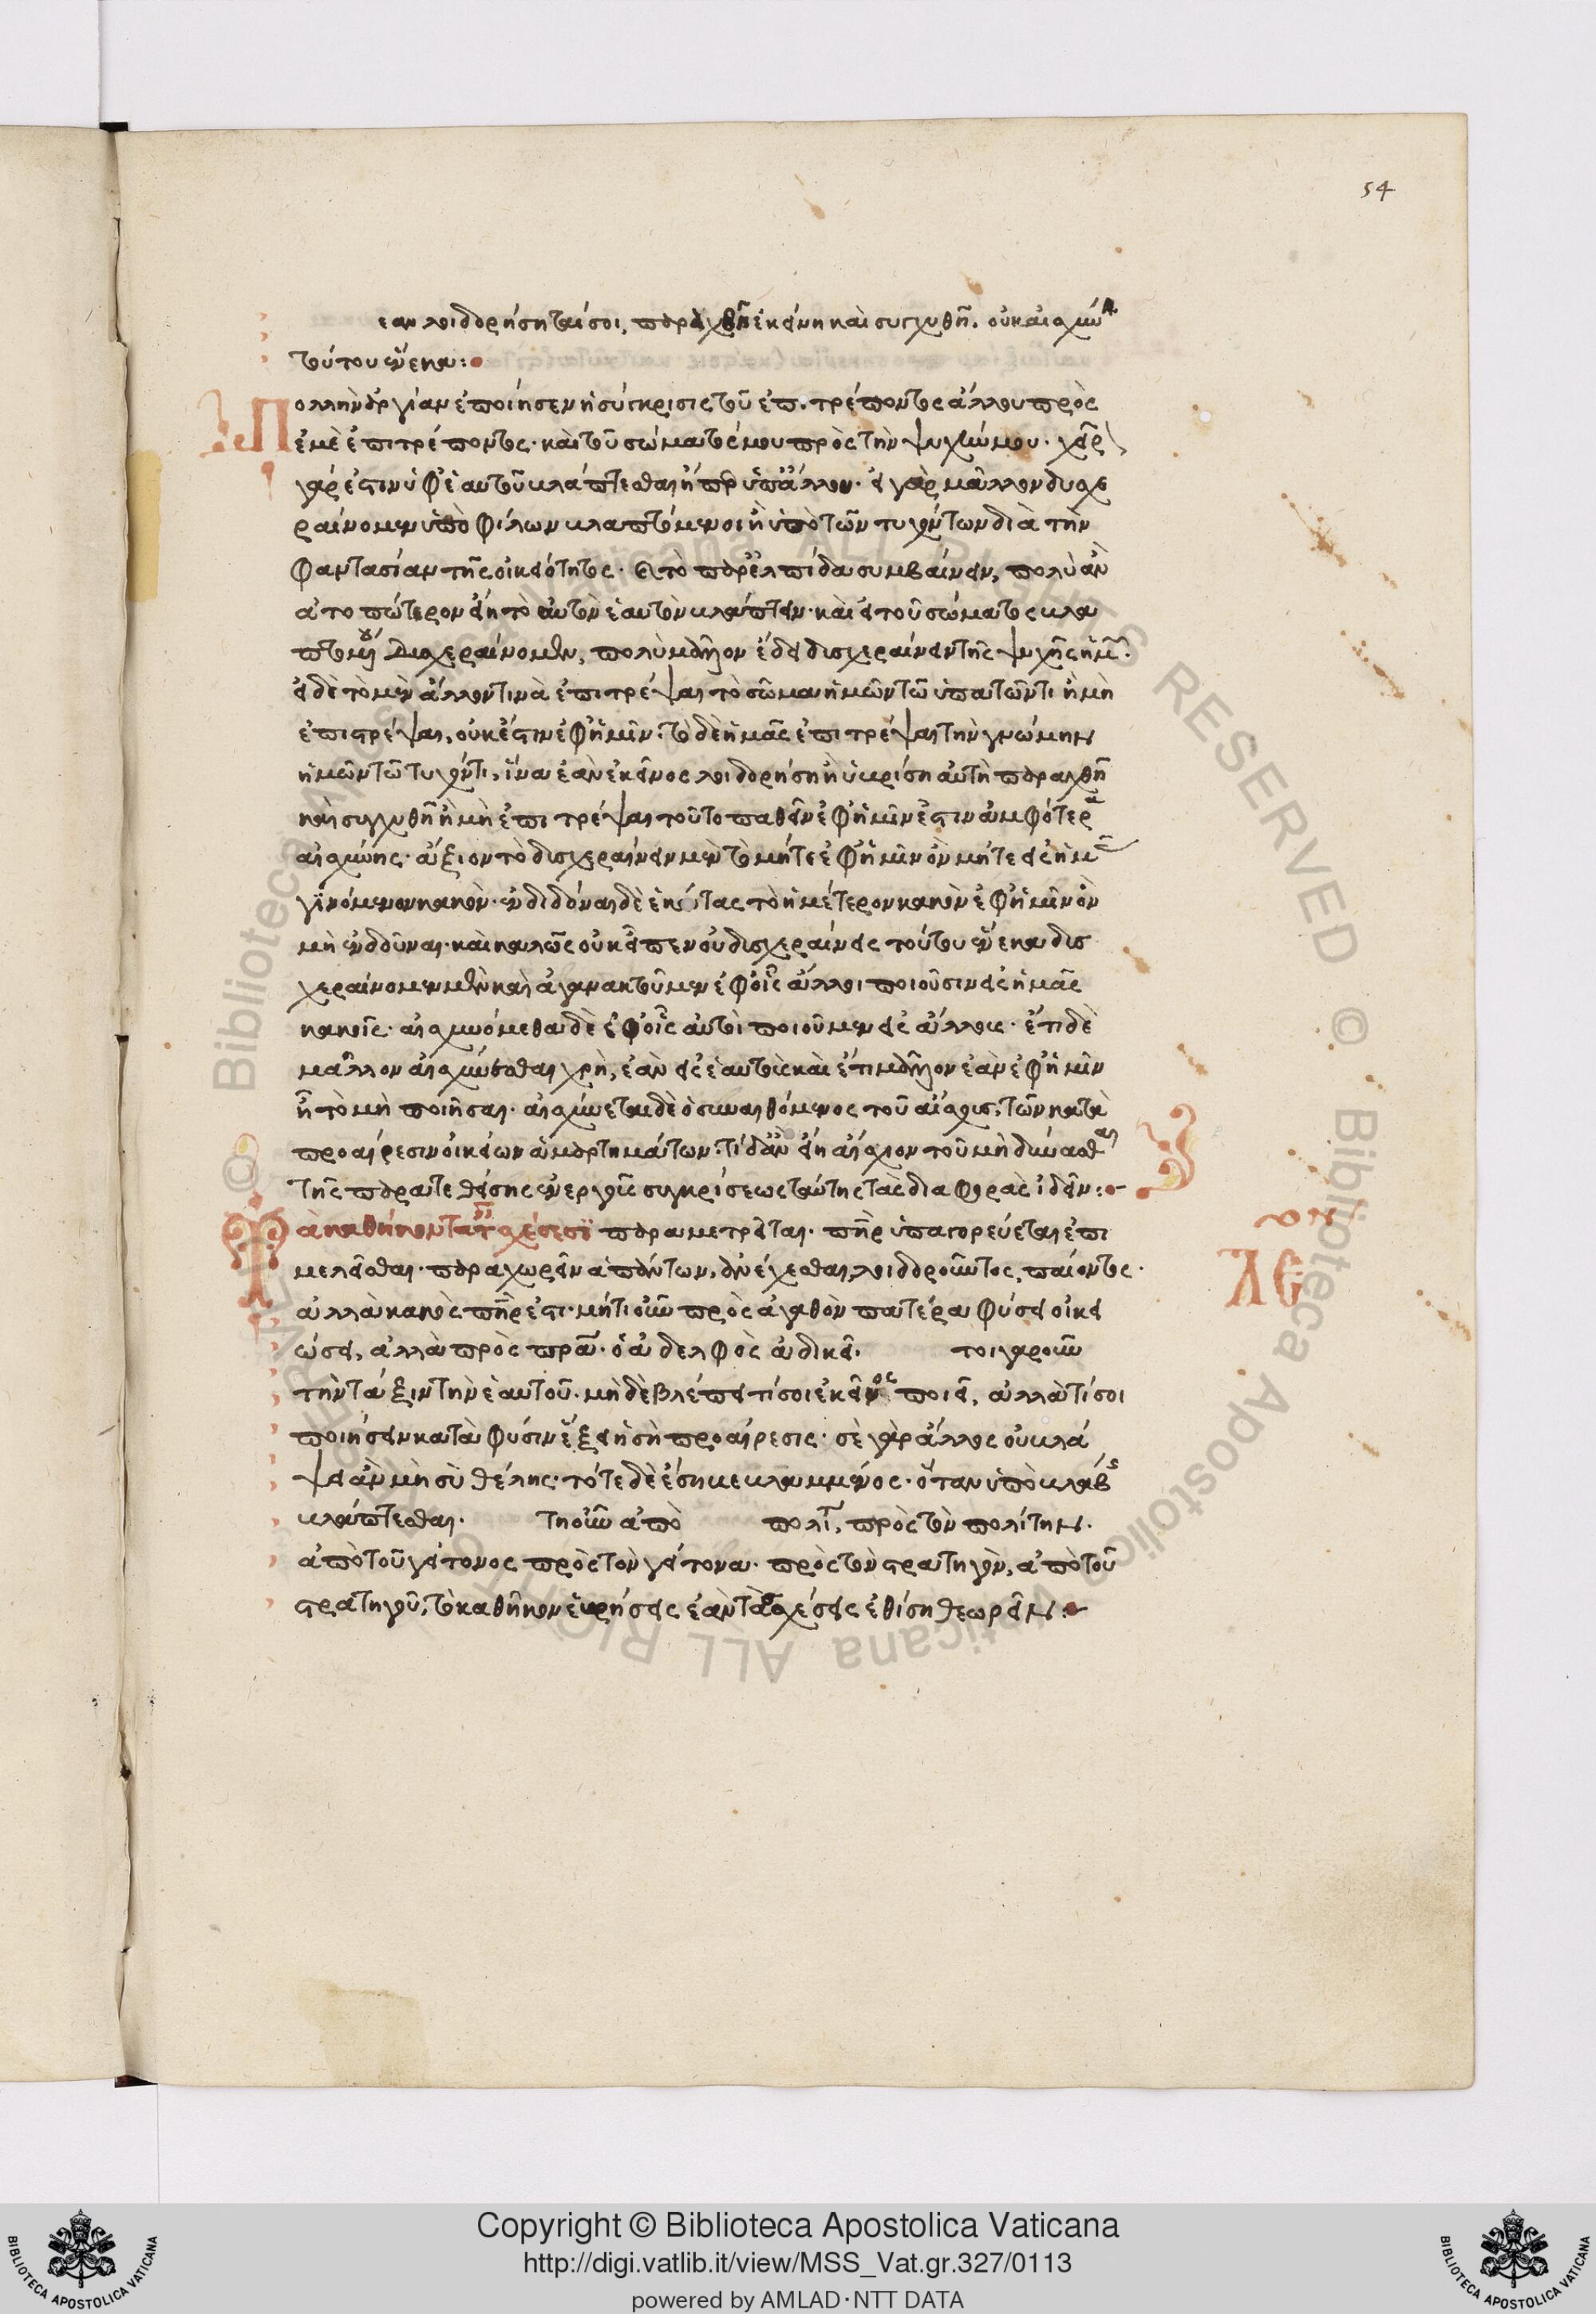 54
εαν λοιδορήσηταί σοι, παραχθῆ ἐκείνη καὶ συγχυθῆ. οὐκ αἰσχύνη
τούτου ἕνεκα:
Πολλὴν ἐποίησεν ἡ σύγκρισις τοῦ ἐπιτρέποντος ἄλλου πρὸς
ἐμὲ ἐπιτρέποντος· καὶ τοῦ σώματός μου πρὸς τὴν ψυχήν μου· χεῖρ
γάρ ἐστιν ὑφ' ἑαυτοῦ βλάπτεσθαι ἤπερ ὑπ' ἄλλου· εἰ γὰρ μᾶλλον δυσχε
ραίνομεν ὑπὸ φίλων βλαπτόμενοι ἢ ὑπὸ τῶν τυχόντων διὰ τὴν
φαντασίαν τῆς οἰκειότητος· τὸ παρ' ἐλπίδα συμβαίνειν, πολὺ ἂν
ἀτοπώτερον εἴη τὸ αὐτὸν ἑαυτὸν βλάπτειν· καὶ εἰ τοῦ σώματος βλα
πτομένου δυσχεραίνομεν, πολὺ μᾶλλον ἔδει δυσχεραίνειν τῆς ψυχῆς ἡμῶν·
εἰ δὲ τὸ μὲν ἄλλον τινὰ ἐπιτρέψαι τὸ σῶμα ἡμῶν τῶ ὑπαντῶντι ἢ μὴ
ἐπιτρέψαι, οὐκ ἔστιν ἐφ' ἡμῖν· τὸ δὲ ἡμᾶς ἐπιτρέψαι τὴν γνώμην
ἡμῶν τῶ τυχόντι, ἵνα ἐὰν ἐκεῖνος λοιδορήση ἢ ὑβρίση αὐτὴ ταραχθῆ
καὶ συγχυθῆ ἢ μὴ ἐπιτρέψαι τοῦτο παθεῖν ἐφ' ἡμῖν ἐστιν ἀμφότερα
αἰσχύνης· ἄξιον τὸ δυσχεραίνειν μὲν τὸ μήτε ἐφ' ἡμῖν ὂν μήτε εἰς ἡμᾶς
γινόμενον κακόν· ἐνδιδόναι δὲ ἑκόντας τὸ ἡμέτερον κακὸν ἐφ' ἡμῖν ὂν
μὴ ἐνδοῦναι· καὶ καλῶς οὐκ εἶπεν οὐ δυσχεραίνεις τούτου ἕνεκα δυσ
χεραίνομεν μὲν καὶ ἀγανακτοῦμεν ἐφ' οἷς ἄλλοι ποιοῦσιν εἰς ἡμᾶς
κακοῖς· αἰσχυνόμεθα δὲ ἐφ' οἷς αὐτοὶ ποιοῦμεν εἰς ἄλλους· ἔτι δὲ
μᾶλλον αἰσχύνεσθαι χρὴ, ἐὰν εἰς ἑαυτοὺς καὶ ἔτι μᾶλλον ἐὰν ἐφ' ἡμῖν
ἦ τὸ μὴ ποιῆσαι· αἰσχύνεται δὲ ὁ συναισθόμενος τοῦ αἴσχους τῶν κατὰ
προαίρεσιν οἰκείων ἁμαρτημάτων· τί δ' ἂν εἴη αἴσχιον τοῦ μὴ δύνασθαι
τῆς παρατεθείσης ἐναργῶς συγκρίσεως ταύτης τὰς διαφορὰς ἰδεῖν:
Τὰ καθήκοντα ταῖς σχέσεσι παραμετρεῖται· πατήρ ὑπαγορεύεται ἐπι
μελεῖσθαι· παραχωρεῖν ἁπάντων, ἀνέχεσθαι, λοιδοροῦντος, παίοντος·
ἀλλὰ κακὸς πατήρ ἐστι· μήτι οὖν πρὸς ἀγαθὸν πατέρα φύσει οἰκει
ώσει, ἀλλὰ πρὸς πατέρα· ὁ ἀδελφὸς ἀδικεῖ· τοιγαροῦν
τὴν τάξιν τὴν ἑαυτοῦ· μὴ δὲ βλέπε τί σοι ἐκεῖνος ποιεῖ, ἀλλὰ τί σοι
ποιήσειν κατὰ φύσιν ἕξει ἡ σὴ προαίρεσις· σὲ γὰρ ἄλλος οὐ βλά
ψει ἂν μὴ σὺ θέλης· τότε δὲ ἔση βεβλαμμένος· ὅταν ὑπολάβης
βλάπτεσθαι· οὖν ἀπὸ πολίτου, πρὸς τὸν πολίτην·
ἀπὸ τοῦ γείτονος πρὸς τὸν γείτονα· πρὸς τὸν στρατηγὸν, ἀπὸ τοῦ
στρατηγοῦ, τὸ καθῆκον εὑρήσεις ἐὰν τὰς σχέσεις ἐθίση θεωρεῖν:
ΛΕ
Copyright © Biblioteca Apostolica Vaticana
http://digi.vatlib.it/view/MSS_Vat.gr.327/0113
powered by AMLAD·NTT DATA
BIBLIOTECA APOSTOLICA VATICANA
BIBLIOTECA APOSTOLICA VATICANA